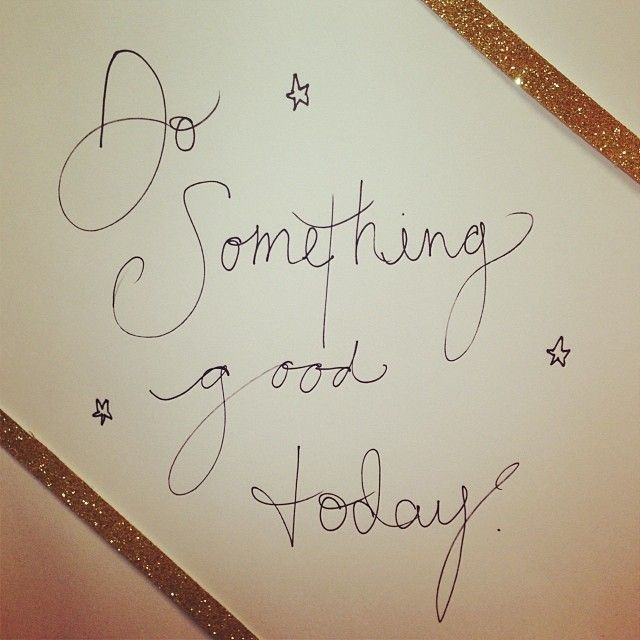 Do
Something
good
today.